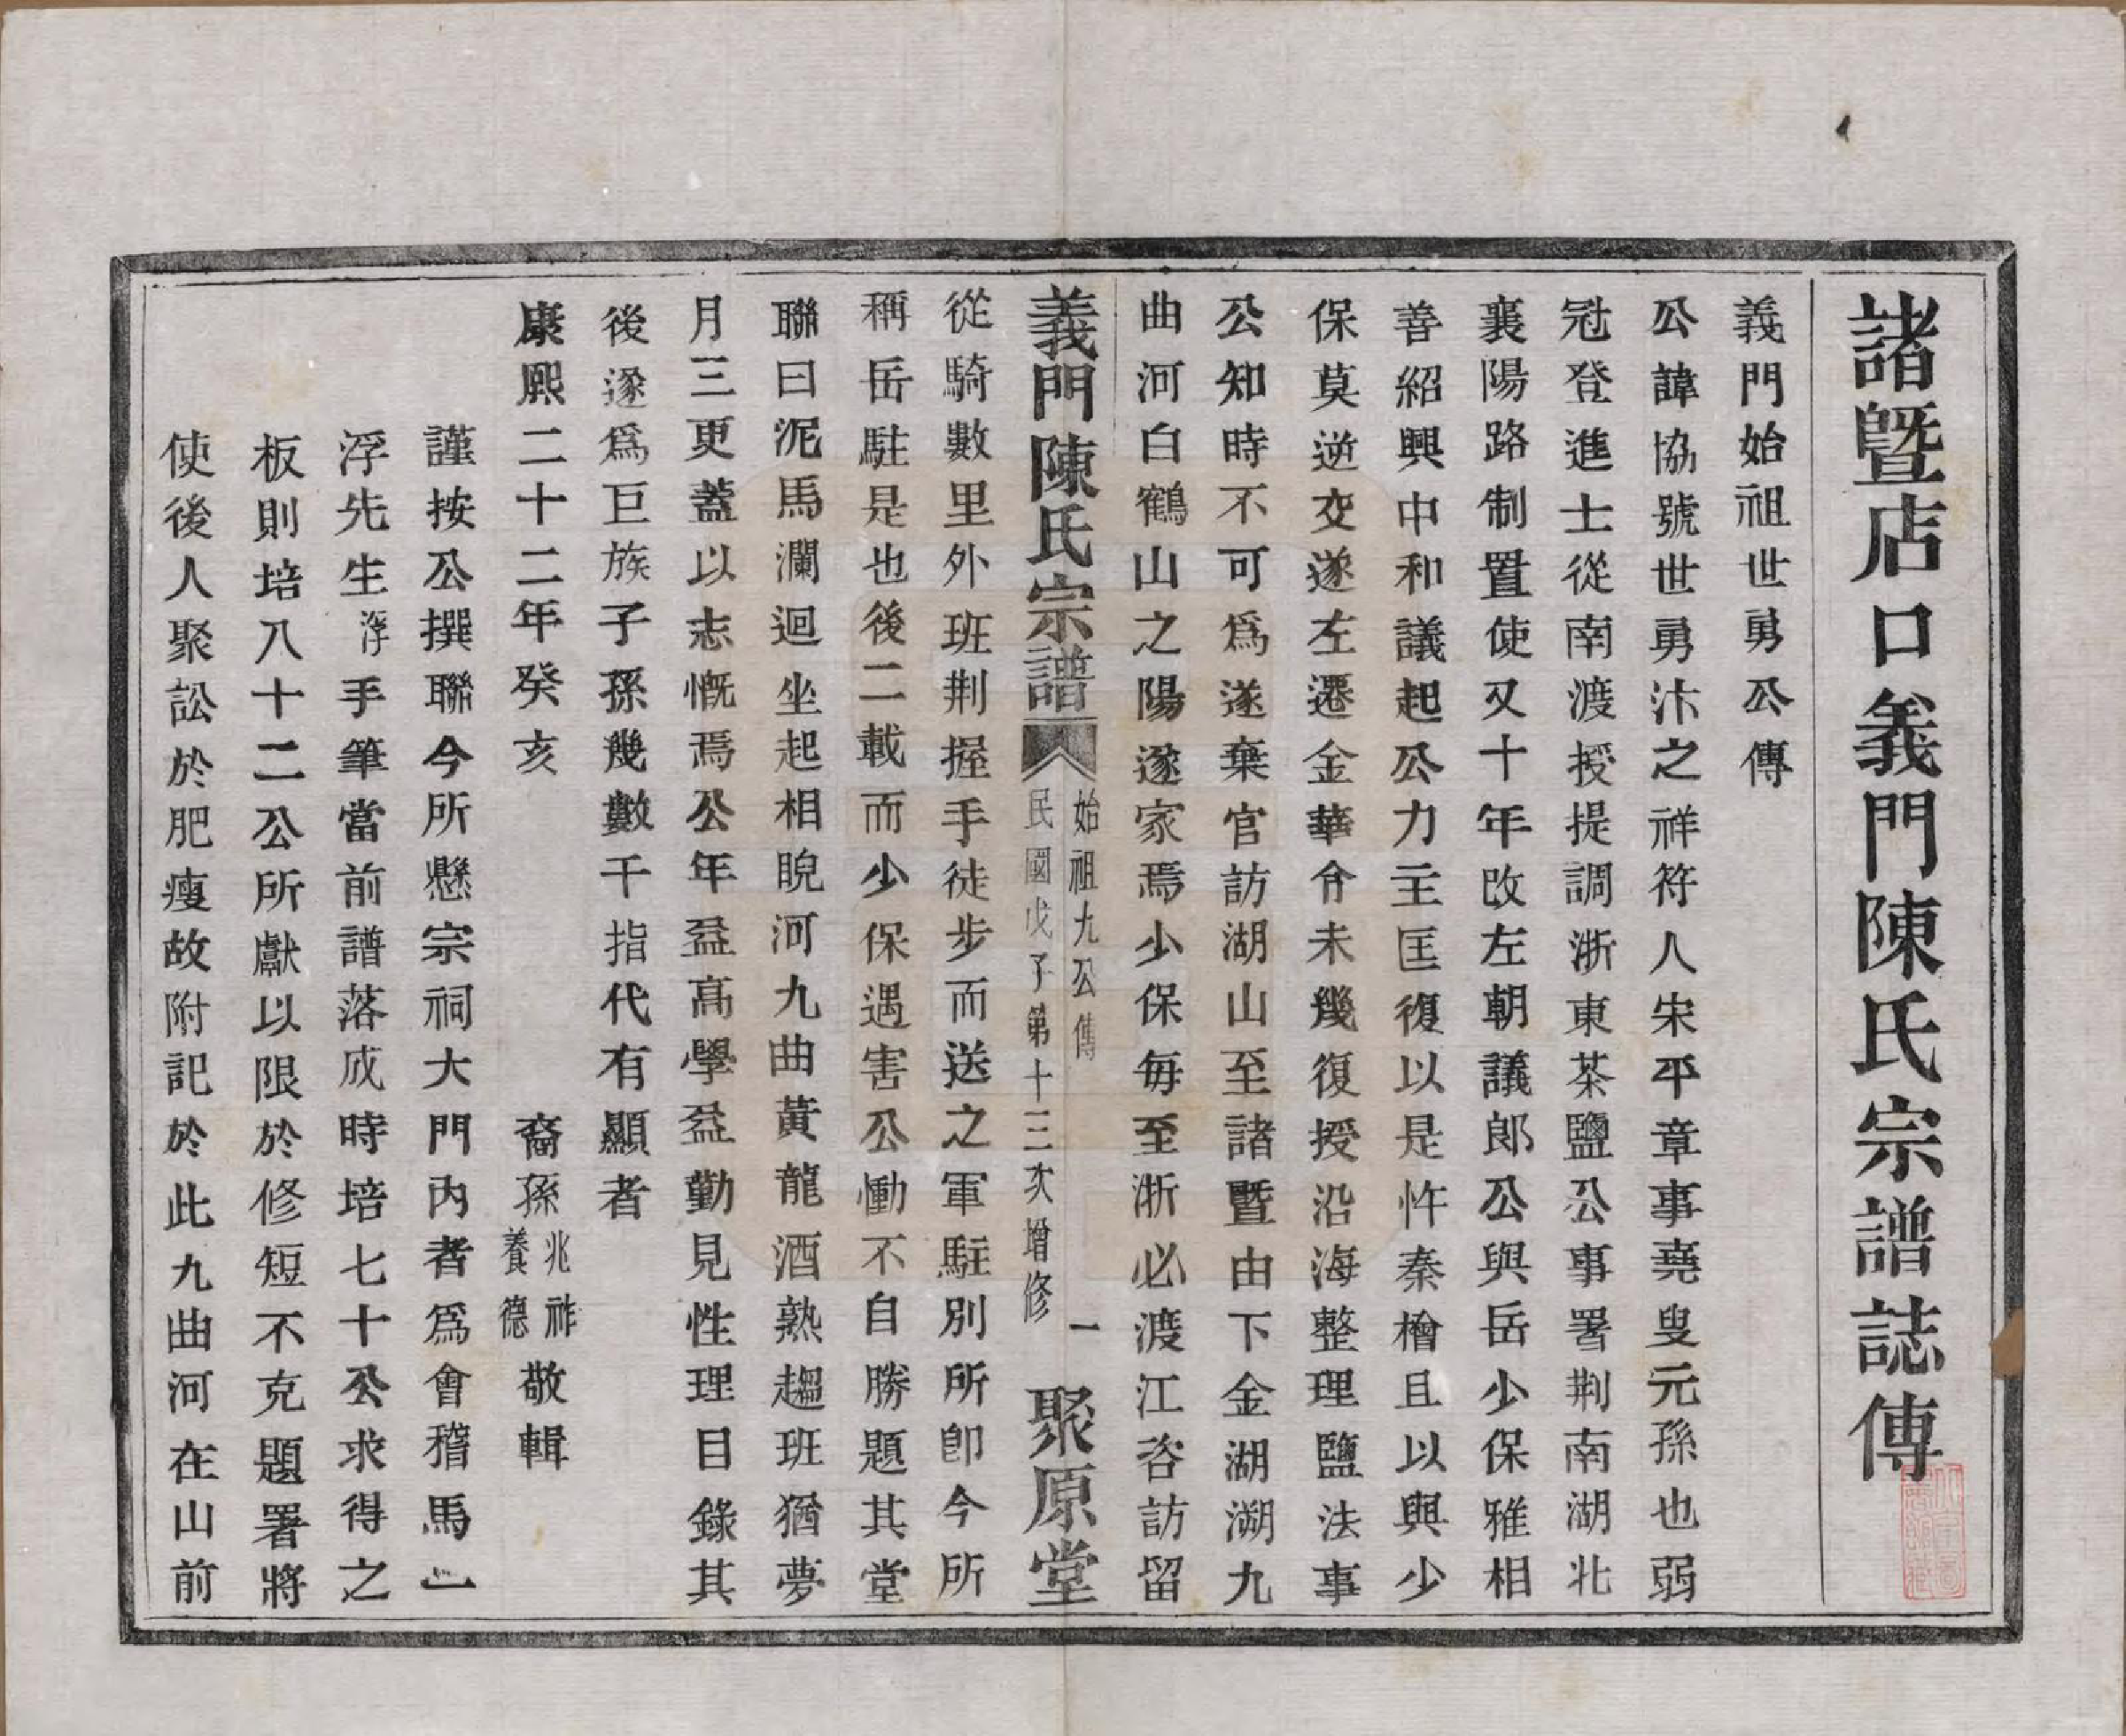 諸暨店口義門陳氏宗譜誌傳
義門始祖世勇公傳
公諱協號世勇汴之祥符人宋平章事堯叟元孫也弱
冠登進士從南渡授提調浙東茶鹽公事署荆南湖北
襄陽路制置使又十年改左朝議郎公與岳少保雅相
善紹興中和議起公力主匡復以是忤秦檜且以與少
保莫逆交遂左遷金華令未幾復授沿海整理鹽法事
公知時不可爲遂棄官訪湖山至諸暨由下金湖溯九
曲河白鶴山之陽遂家焉少保每至浙必渡江咨訪留
義門陳氏宗譜
始祖九公傳
民國戊子第十三次增修
一
聚原堂
從騎數里外班荆握手徒步而送之軍駐別所卽今所
稱岳駐是也後二載而少保遇害公慟不自勝題其堂
聯曰泥馬瀾迴坐起相睨河九曲黃龍酒熟趨班猶夢
月三更蓋以志慨焉公年益高學益勤見性理目錄其
後遂爲巨族子孫幾數千指代有顯者
康熙二十二年癸亥
裔孫兆祚養德敬輯
謹按公撰聯今所懸宗祠大門內者爲會稽馬一
浮先生浮手筆當前譜落成時培七十公求得之
板則培八十二公所獻以限於修短不克題署將
使後人聚訟於肥瘦故附記於此九曲河在山前